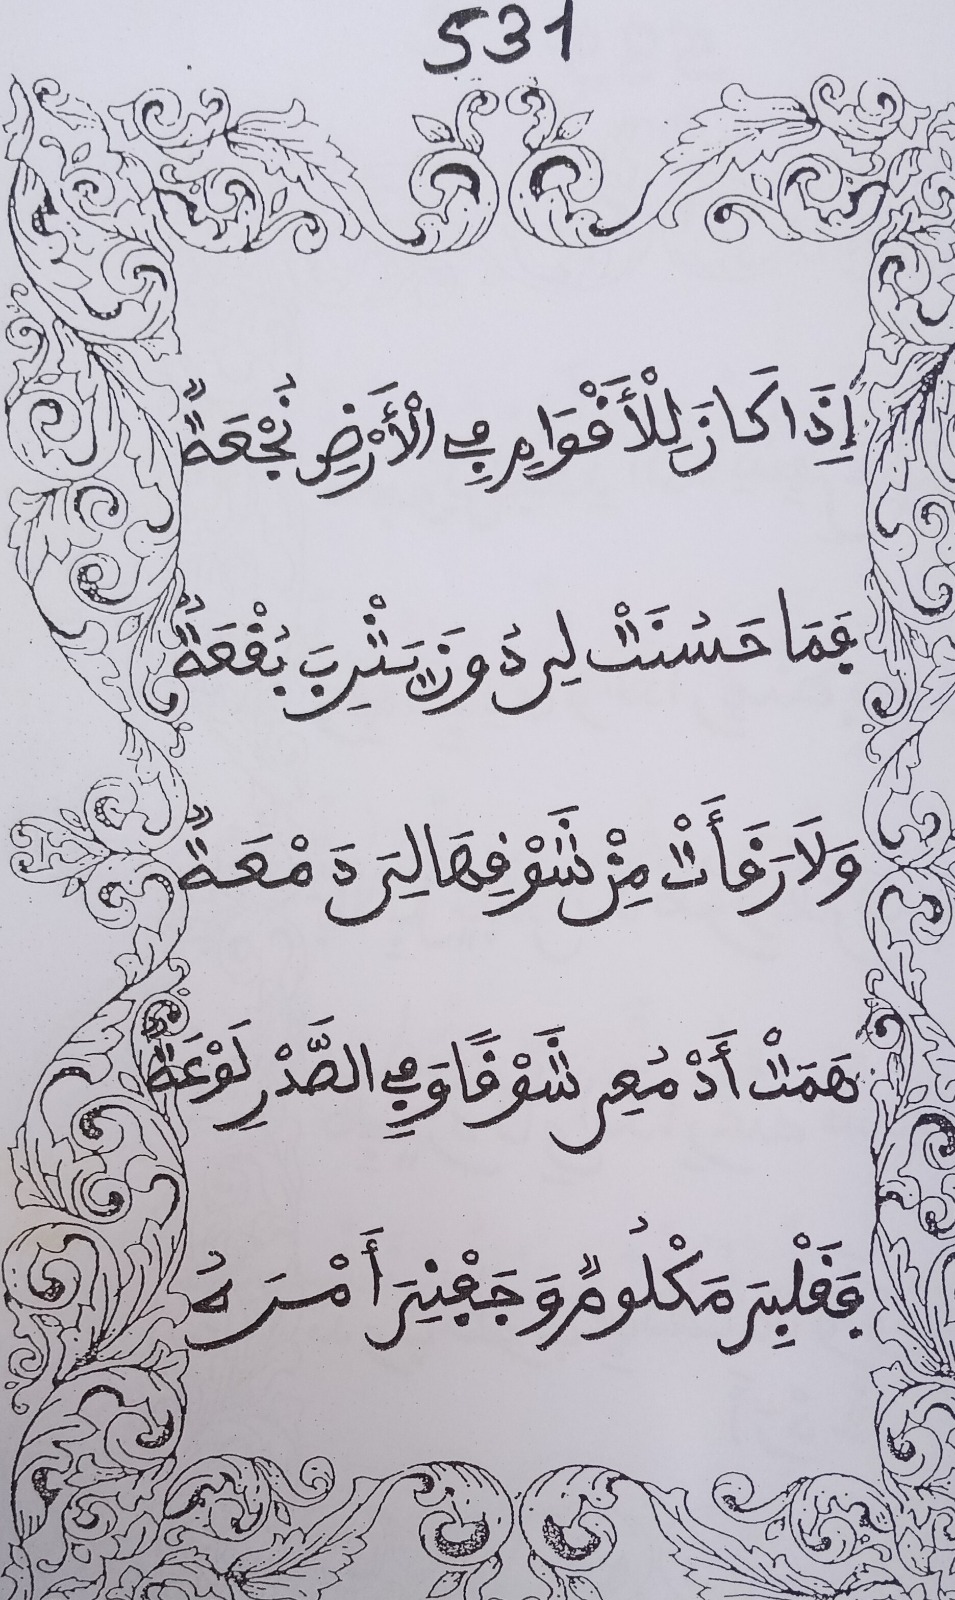 531
إِذَا كَانَ لِلْأَقْوَامِ فِي الْأَرْضِ نُجْعَةٌ
فَمَا حَسُنَتْ لِي دُونَ يَثْرِبَ بُقْعَةٌ
وَلَا رَقَأَتْ مِنْ شَوْقِهَا لِيَ دَمْعَةٌ
هَمَتْ أَدْمُعِي شَوْقًا وَفِي الصَّدْرِ لَوْعَةٌ
فَقَلْبِيَ مَكْلُومٌ وَجَفْنِيَ أَمْرَهُ